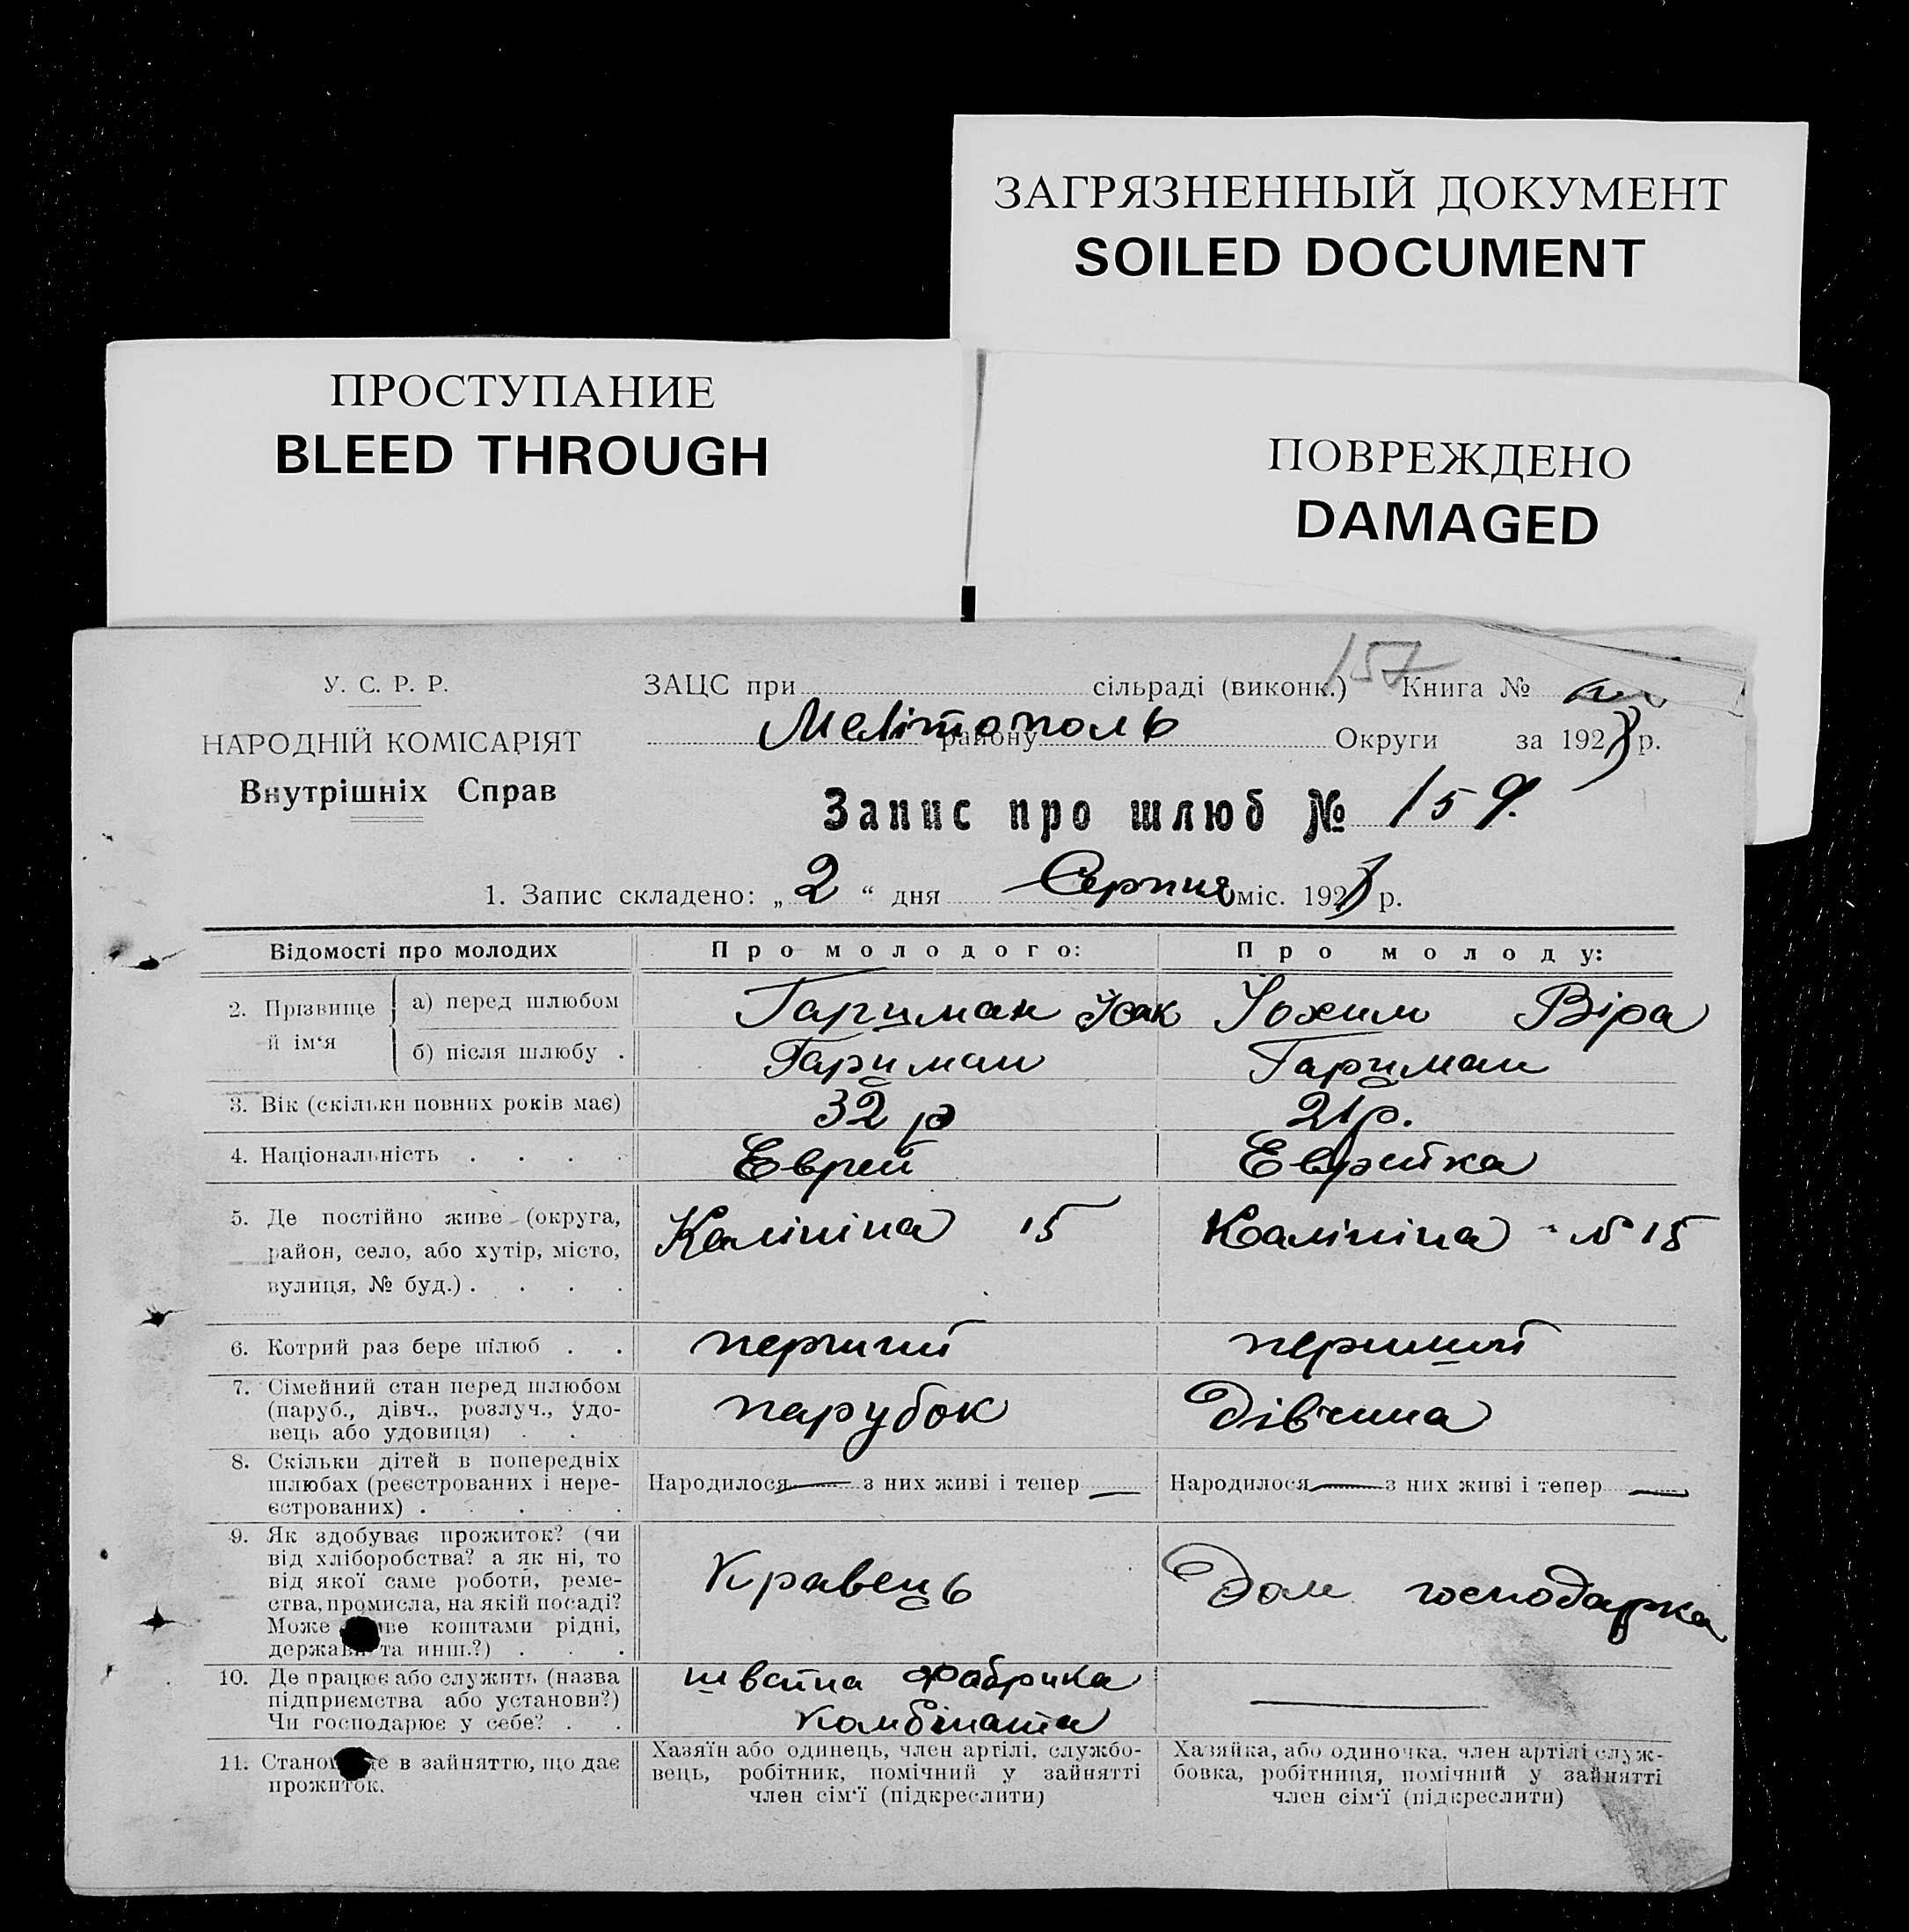 ЗАГРЯЗНЕННЫЙ ДОКУМЕНТ
SOILED DOCUMENT
ПРОСТУПАНИЕ
BLEED THROUGH
ПОВРЕЖДЕНО
DAMAGED
У. С. Р. Р.
НАРОДНІЙ КОМІСАРІЯТ
Внутрішніх Справ
157
ЗАЦС при сільраді (виконк.) Книга №
Мелітополь району Округи за 192 р.
Запис про шлюб № 159.
1. Запис складено: „ 2 “ дня Серпня міс. 192 р.
Відомості про молодих Про молодого: Про молоду:
2. Прізвище й ім‘я
а) перед шлюбом Гарцман Ісак Іохим Віра
б) після шлюбу . Гарцман Гарцман
3. Вік (скільки повних років має) 32 р 21 р.
4. Національність . . . . Еврей Еврейка
5. Де постійно живе (округа,
район, село, або хутір, місто,
вулиця, № буд.) . . . .
Калініна 15 Калініна № 15
6. Котрий раз бере шлюб . . перший перший
7. Сімейний стан перед шлюбом
(паруб., дівч., розлуч., удо-
вець або удовиця) . .
парубок Дівчина
8. Скільки дітей в попередніх
шлюбах (реєстрованих і нере-
єстрованих) . . . . .
Народилося — з них живі і тепер — Народилося — з них живі і тепер —
9. Як здобуває прожиток? (чи
від хліборобства? а як ні, то
від якої саме роботи, реме-
ства, промисла, на якій посаді?
Може коштами рідні,
держави та инш.?) . . .
Кравець Дом господарка
10. Де працює або служить (назва
підприємства або установи?)
Чи господарює у себе? . .
швейна фабрика
комбіната —
11. в зайняттю, що дає
прожиток.
Хазяїн або одинець, член артілі, службо-
вець, робітник, помічний у зайнятті
член сім‘ї (підкреслити)
Хазяйка, або одиночка, член артілі служ-
бовка, робітниця, помічний у зайнятті
член сім‘ї (підкреслити)